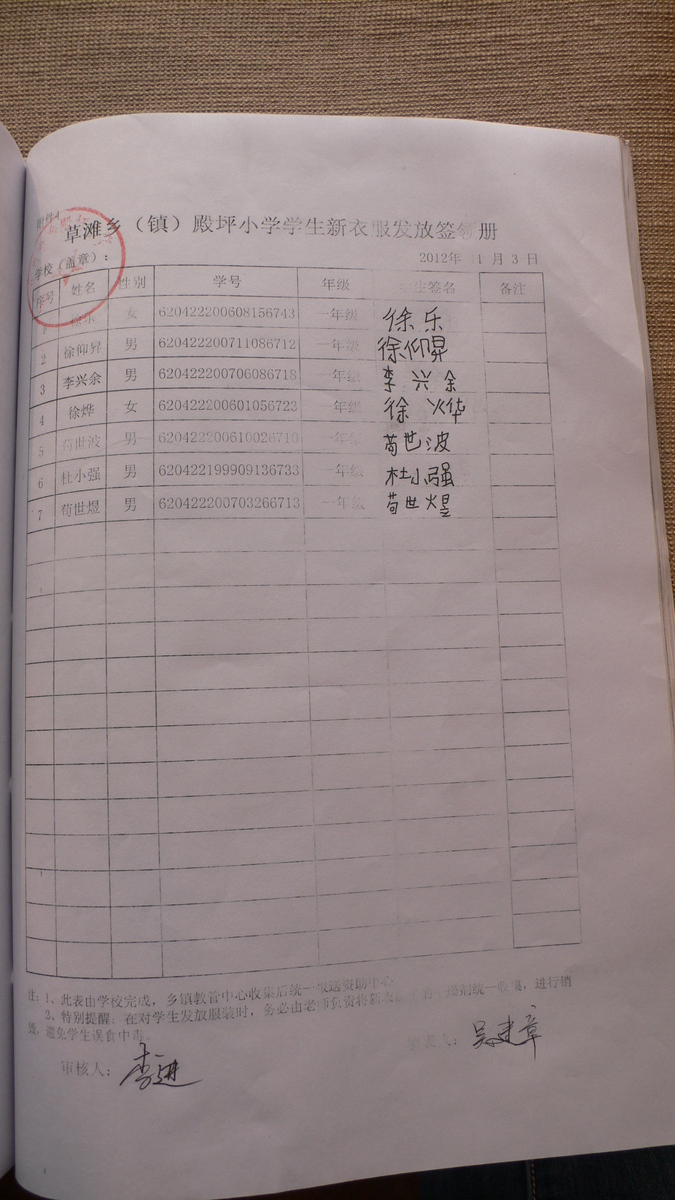 附件4
草滩乡（镇）殿坪小学学生新衣服发放签领册
学校（盖章）： 2012年 11 月 3 日
序号 姓名 性别 学号 年级 学生签名 备注
1 徐乐 女 620422200608156743 一年级 徐乐
2 徐仰昇 男 620422200711086712 一年级 徐仰昇
3 李兴余 男 620422200706086718 一年级 李兴余
4 徐烨 女 620422200601056723 一年级 徐烨
5 苟世波 男 620422200610026710 一年级 苟世波
6 杜小强 男 620422199909136733 一年级 杜小强
7 苟世煜 男 620422200703266713 一年级 苟世煜
注：1、此表由学校完成，乡镇教管中心收集后统一报送资助中心
2、特别提醒：在对学生发放服装时，务必由老师负责将新衣 统一收集，进行销
毁，避免学生误食中毒。
审核人：李进 填表人：吴建章